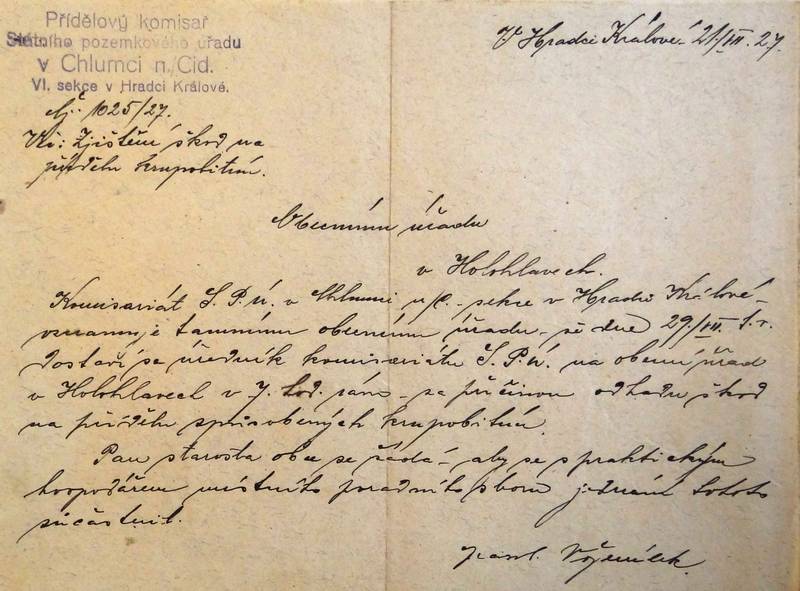 Přídělový komisař
Státního pozemkového úřadu
v Chlumci n./Cid.
VI. sekce v Hradci Králové.
V Hradci Králové 21./VII. 27.
Čj.: 1025/27.
Věc: Zjištění škod na
přídělu krupobitím.
Obecnímu úřadu
v Holohlavech.
Komisariát S.P.Ú. v Chlumci n/C. sekce v Hradci Králové
oznamuje tamnímu obecnímu úřadu, že dne 29./VII. t.r.
dostaví se úředník komisariátu S.P.Ú. na obecní úřad
v Holohlavech v 7. hod. ráno za příčinou odhadu škod
na přídělu způsobených krupobitím.
Pan starosta obce se žádá, aby se s praktickým
hospodářem místního poradního sboru jednání tohoto
súčastnil.